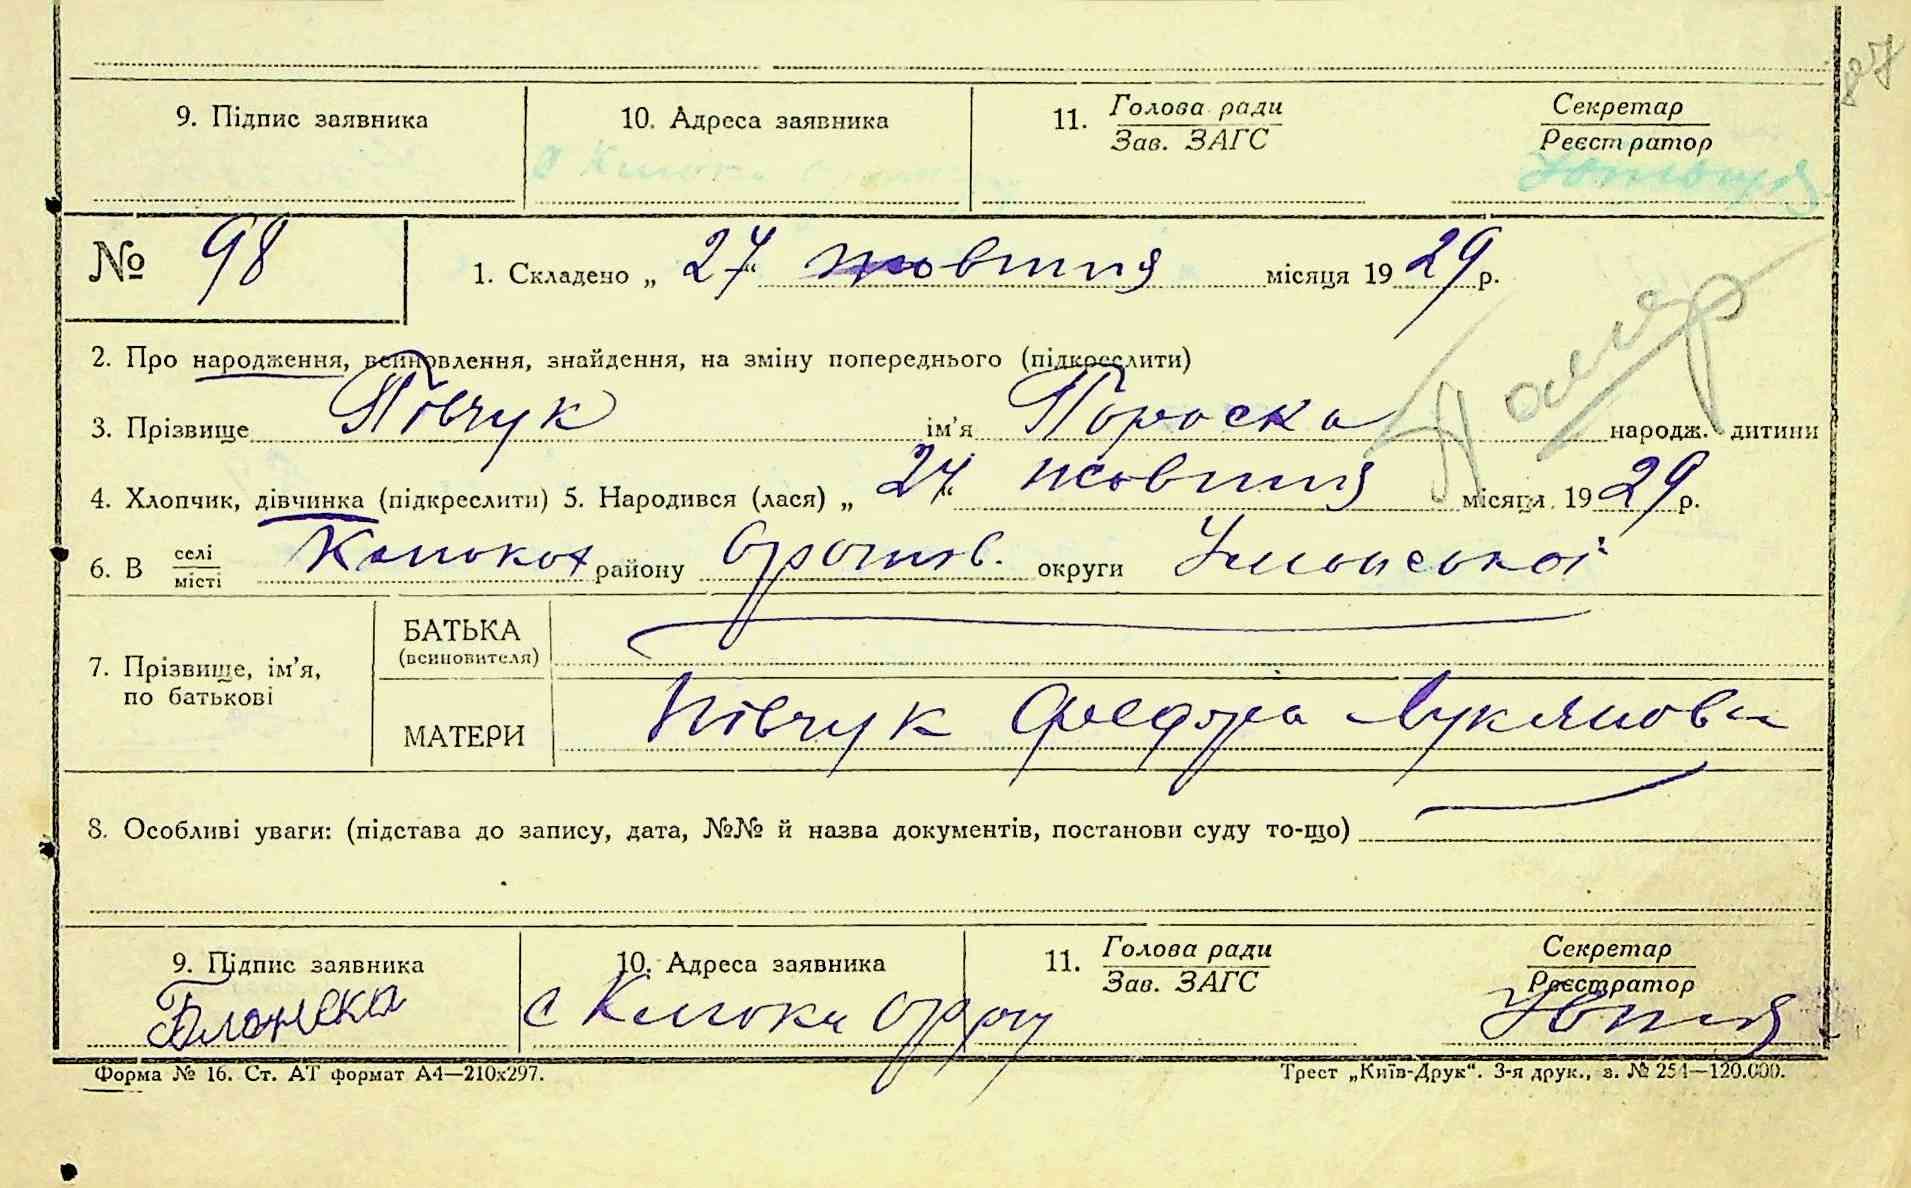 9. Підпис заявника
10. Адреса заявника
11. Голова ради
Зав. ЗАГС
Секретар
Реєстратор
№ 98
1. Складено „27“ жовтня місяця 1929 р.
2. Про народження, всиновлення, знайдення, на зміну попереднього (підкреслити)
3. Прізвище Півчук ім’я Параска народж. дитини
4. Хлопчик, дівчинка (підкреслити) 5. Народився (лася) „24“ жовтня місяця 1929 р.
6. В селі
місті
району Оратів. округи Уманської
7. Прізвище, ім’я,
по батькові
БАТЬКА
(всиновителя)
МАТЕРИ Півчук Федора Лукянова
8. Особливі уваги: (підстава до запису, дата, №№ й назва документів, постанови суду то-що)
9. Підпис заявника
10. Адреса заявника
с
11. Голова ради
Зав. ЗАГС
Секретар
Реєстратор
Форма № 16. Ст. АТ формат А4—210х297.
Трест „Київ-Друк“. 3-я друк., з. № 254—120.000.